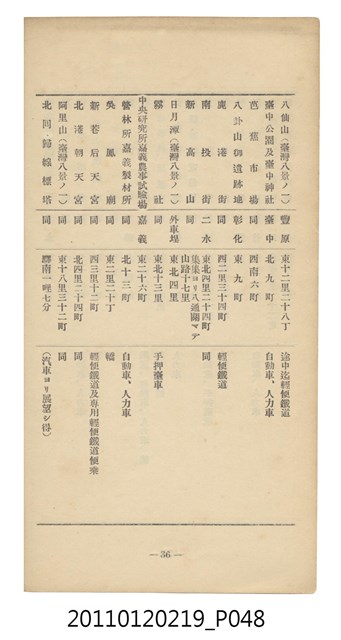 八仙山(臺灣八景ノ一) 豐原 東十二里二十八丁 途中迄輕便鐵道
臺中公園及臺中神社 臺中 北九町 自動車、人力車
芭蕉市場 同 西南六町
八卦山御遺跡地 彰化 東九町
鹿港街 同 西二里三十四町 輕便鐵道
南投街 二水 東北四里二十四町 同
新高山 同 集集ヨリ八通關マデ山路十七里
日月潭(臺灣八景ノ一) 外車埕 東北四里
霧社 同 東北十三里 手押臺車
中央研究所嘉義農事試驗場 嘉義 東二十六町
營林所嘉義製材所 同 北十三町 自動車、人力車
吳鳳廟 同 東二里二十丁 轎
新巷后天宮 同 西三里十二町 輕便鐵道及專用輕便鐵道便乘
北港朝天宮 同 北四里二十四町 同
阿里山(臺灣八景ノ一) 同 東十八里三十二町 同
北回歸線標塔 同 驛南一哩七分 (汽車ヨリ展望シ得)
— 36 —
20110120219_P048